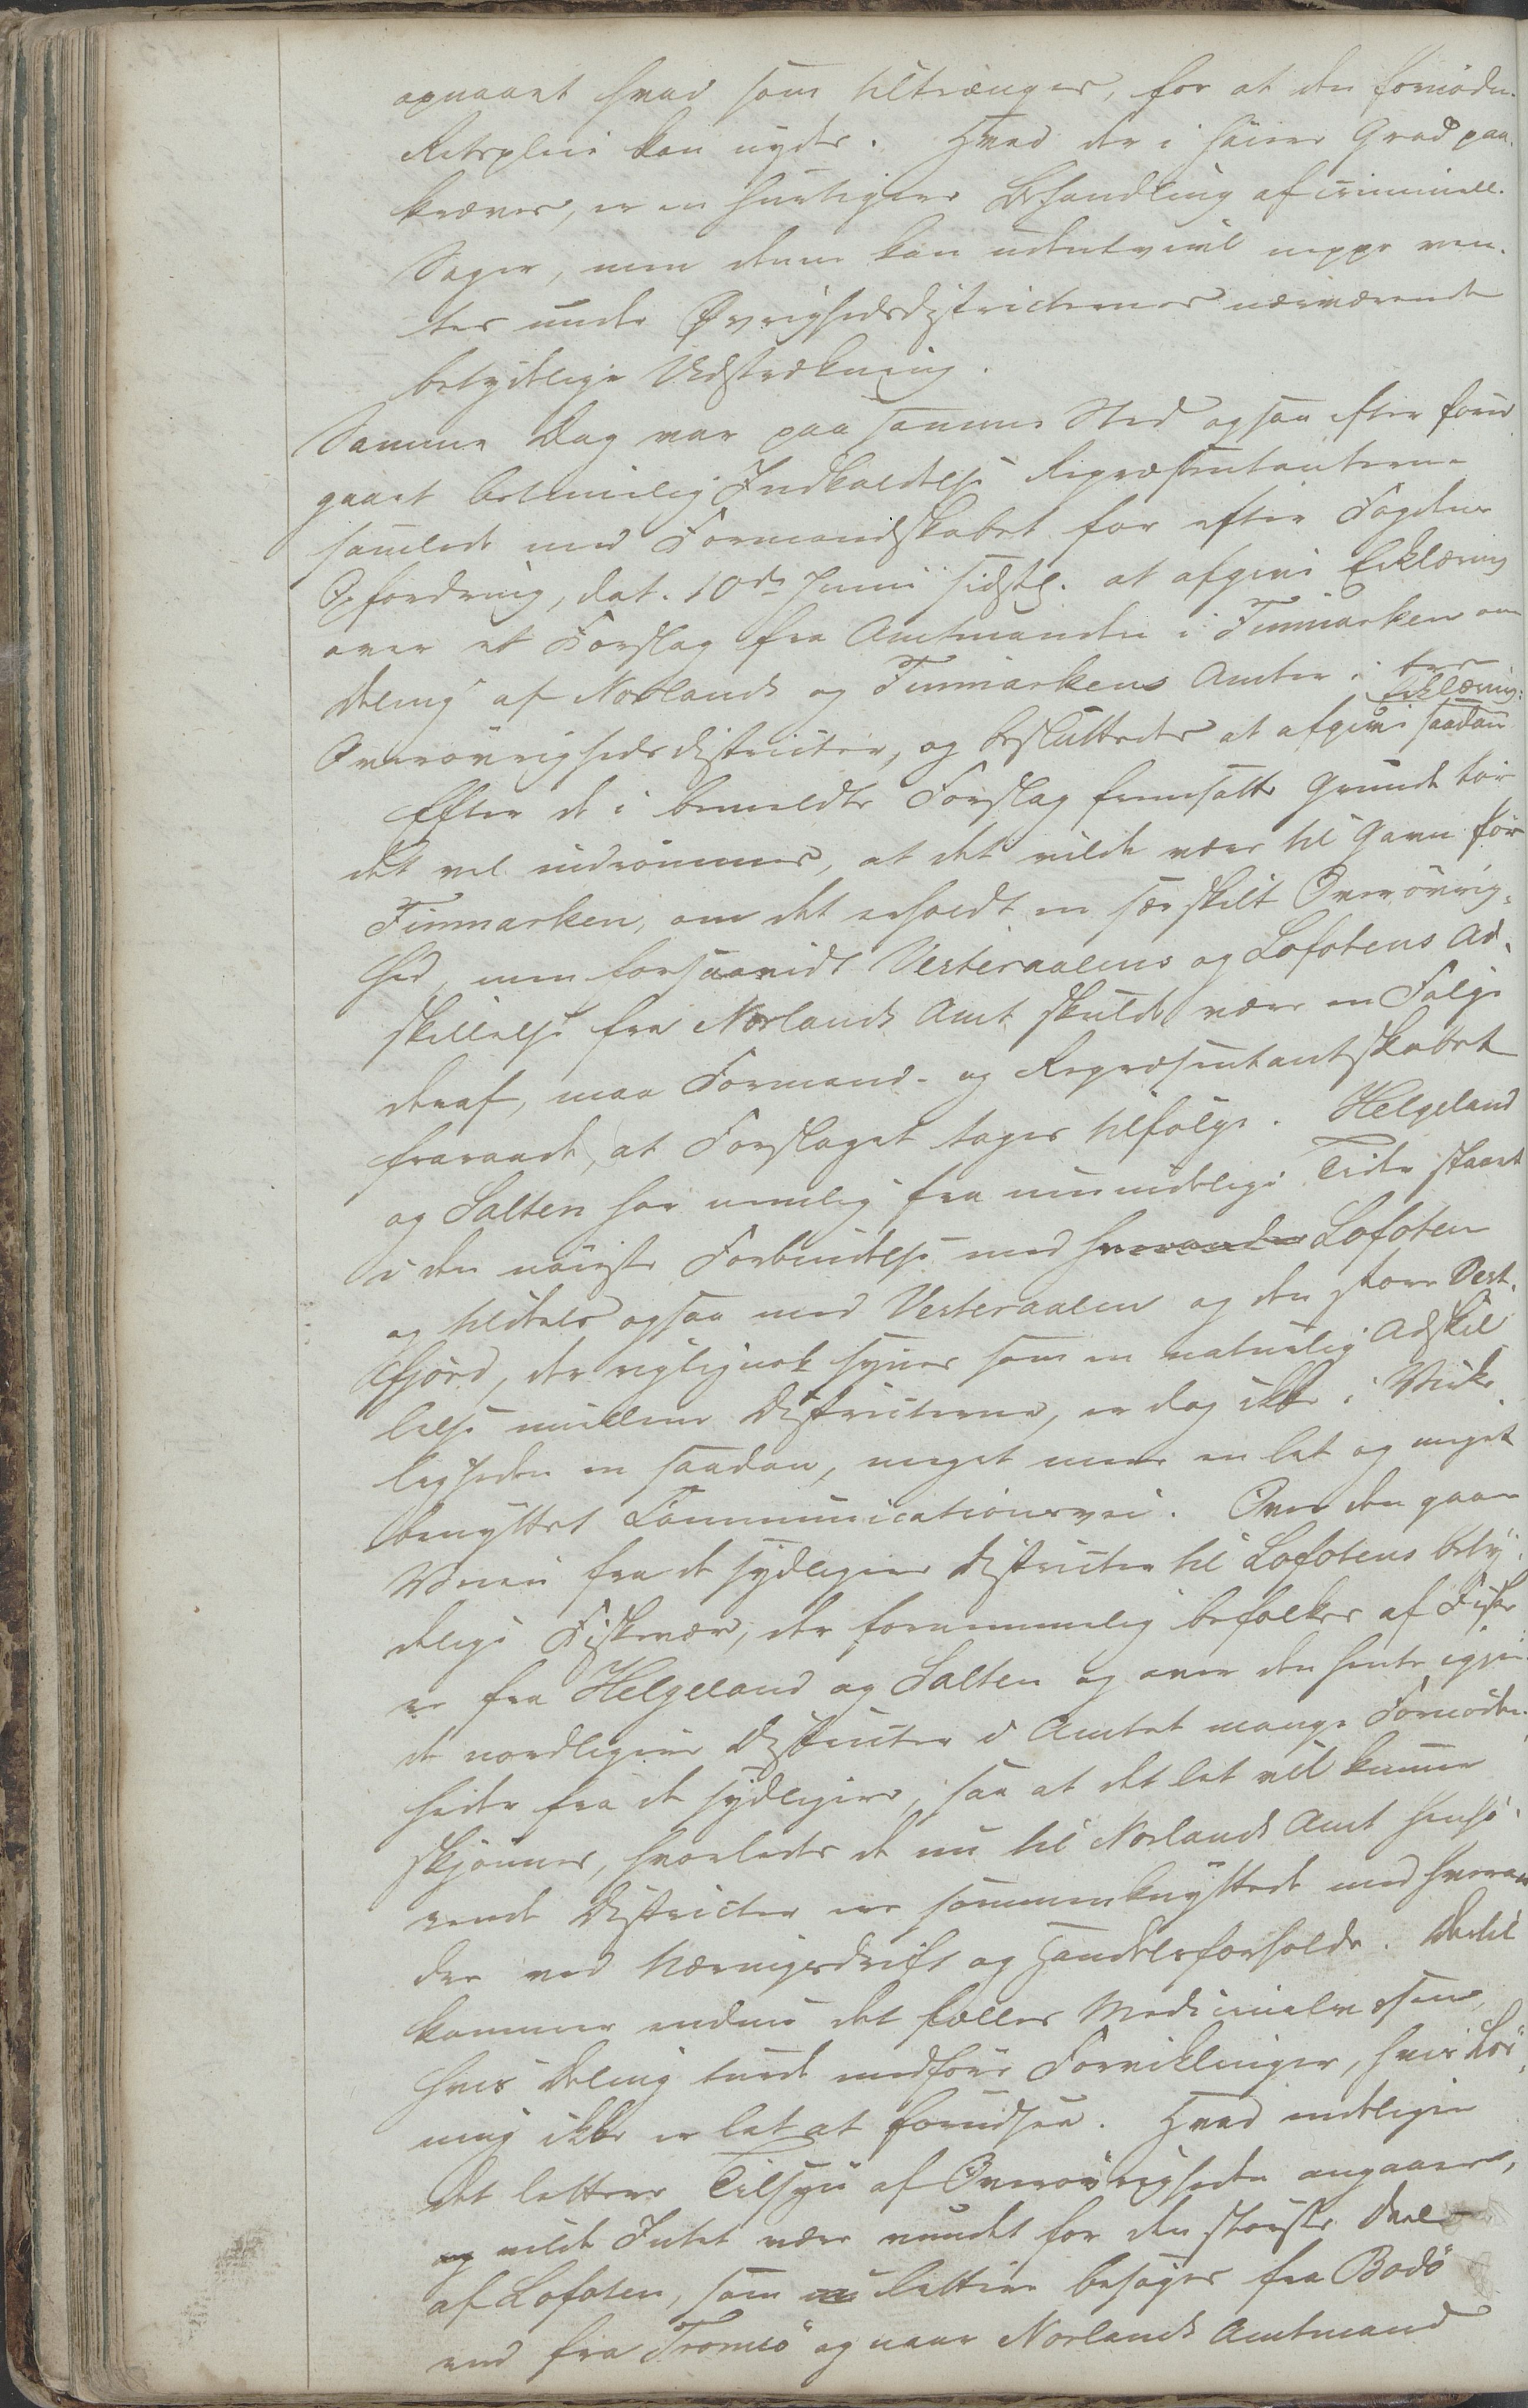 opnaaet hvad som tiltrænges, for at den fornødn.
Retspleie kan nydes. Hvad der i høiere Grad paa-
kræves, er en hurtigere Behandling af criminell.
Sager, men denne kan udentvivl neppe ven-
tes under Øvrighedsdistricternes nærværende
betydelige Udstrækning.
Samme Dag var paa samme Sted ogsaa efter forud
gaaet betimelig Indkaldelse Repræsentanterne
samlede med Formandskabet for efter Fogdens
Opfordring, dat. 10de Juni sidstl. at afgive Erklæring
over et Forslag fra Amtmanden i Finmarken om
Deling af Norlands og Finmarkens Amter i tre
Overøvrighedsdistricter, og besluttedes at afgive saadan Erklæring:
Efter de i bemeldte Forslag fremsatte Grunde tør
det vel indrømmes, at det vilde være til Gavn for
Finmarken, om det erholdt en særskilt Overøvrig-
hed, men forsaavidt Vesteraalens og Lofotens Ad-
skillelse fra Norlands Amt skulde være en Følge
deraf, maa Formand- og Repræsentantskabet
fraraade, at Forslaget tages tilfølge. Helgeland
og Salten har nemlig fra umindelige Tider staaet
i den nøieste Forbindelse med hverandre Lofoten
og tildels ogsaa med Vesteraalen og den store Vest-
fjord, der rigtignok synes som en naturlig Adskil
lelse mellem Districterne, er dog ikke i Virke
ligheden en saadan, meget mere en let og meget
benyttet Communicationsvei. Over den gaar
Veien fra de sydligere Districter til Lofotens bety-
delige Fiskevær, der fornemmelig befolkes af Fisker
e fra Helgeland og Salten og over den hente igjen
de nordligere Districter i Amtet mange Fornøden-
heder fra de sydligere, saa at det let vil kunne
skjønnes, hvorledes de nu til Norlands Amt henhø-
rende Districter ere sammenknyttede med hveran
dre ved Næringsdrift og Handelsforholde. Dertil
kommer endnu det fælles Medicinalvæsen,
hvis Deling turde medføre Forviklinger, hvis Løs-
ning ikke er let at forudsee. Hvad endeligen
det lettere Tilsyn af Overøvrigheden angaaer,
og vilde Intet være vundet for den største Deel
af Lofoten, som nu lettere besøges fra Bodø
end fra Tromsø og naar Norlands Amtmand